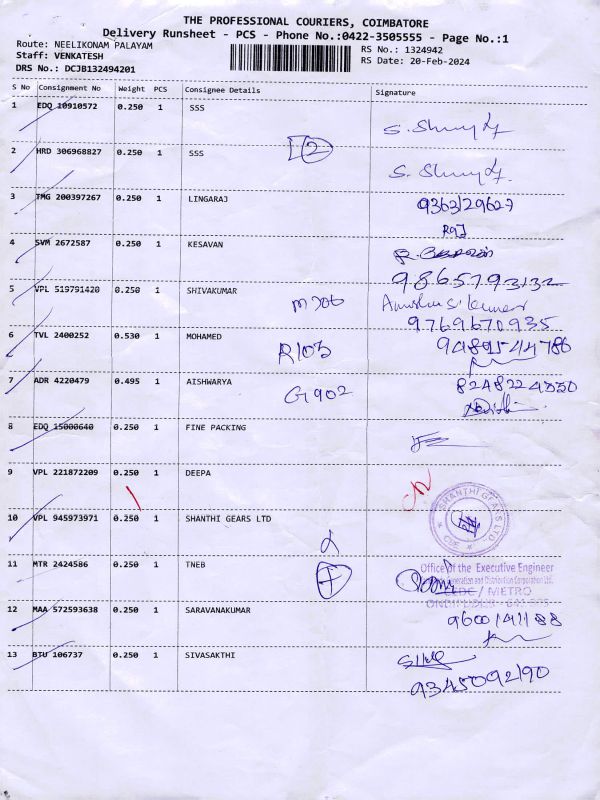 THE PROFESSIONAL COURIERS, COIMBATORE
Delivery Runsheet - PCS - Phone No.:0422-3505555 - Page No.:1
Route: NEELIKONAM PALAYAM
Staff: VENKATESH
DRS No.: DCJB132494201
RS No.: 1324942
RS Date: 20-Feb-2024
S No Consignment No Weight PCS Consignee Details Signature
1 EDQ 10910572 0.250 1 SSS
2 HRD 306968827 0.250 1 SSS 2
3 TMG 200397267 0.250 1 LINGARAJ 9363129627
Raj
4 SVM 2672587 0.250 1 KESAVAN
9865793132
5 VPL 519791420 0.250 1 SHIVAKUMAR M706
9769670935
6 TVL 2400252 0.530 1 MOHAMED R103
7 ADR 4220479 0.495 1 AISHWARYA G902
8 EDQ 15000640 0.250 1 FINE PACKING
9 VPL 221872209 0.250 1 DEEPA
10 VPL 945973971 0.250 1 SHANTHI GEARS LTD
SHANTHI GEARS LTD.
11 MTR 2424586 0.250 1 TNEB
Office of the Executive Engineer
Generation and Distribution Corporation Ltd.
CEDC / METRO
12 MAA 572593638 0.250 1 SARAVANAKUMAR 9600141188
13 BTU 106737 0.250 1 SIVASAKTHI
9345092190